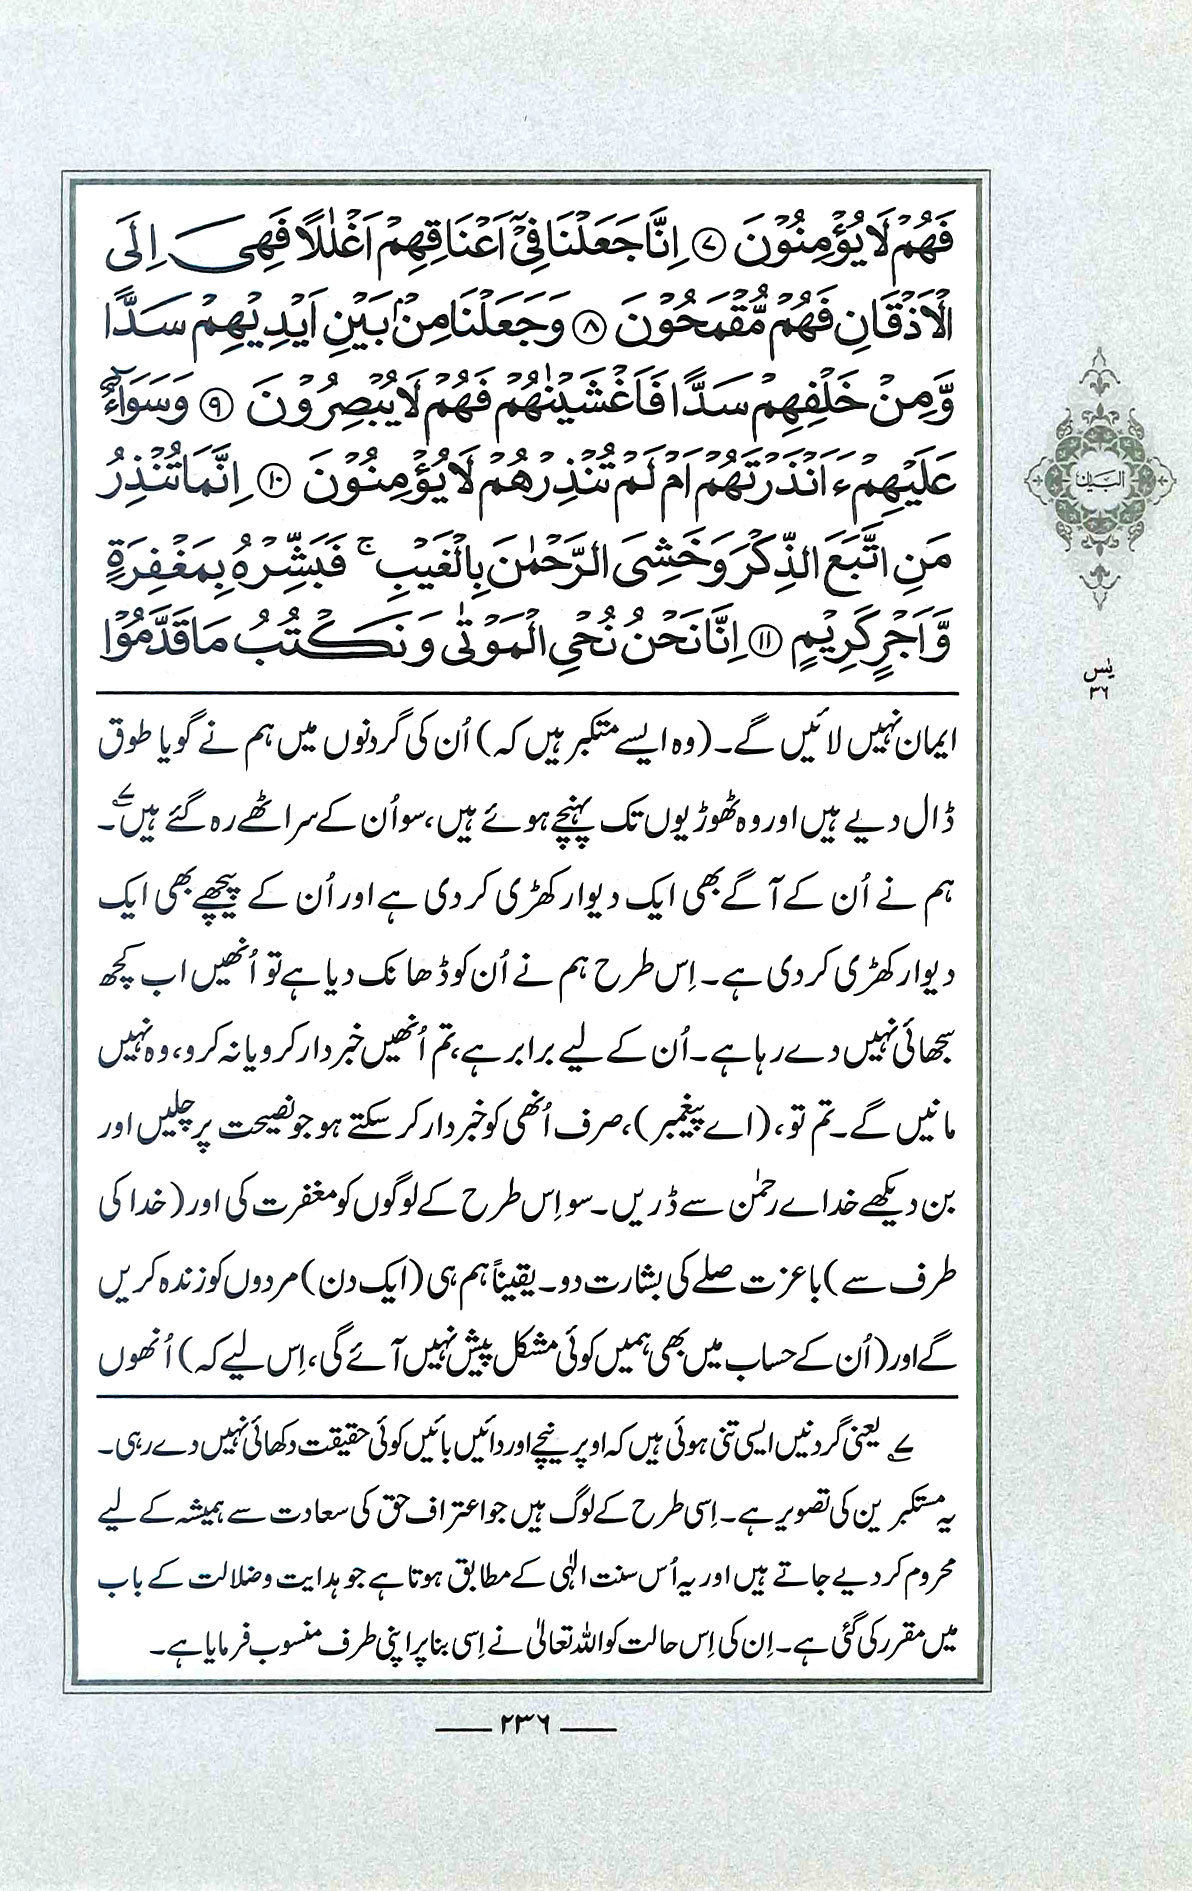 فَهُمْ لَا يُؤْمِنُوْنَ ﴿۷﴾ اِنَّا جَعَلْنَا فِيْٓ اَعْنَاقِهِمْ اَغْلٰلًا فَهِيَ اِلَى
الْاَذْقَانِ فَهُمْ مُّقْمَحُوْنَ ﴿۸﴾ وَجَعَلْنَا مِنْۢ بَيْنِ اَيْدِيْهِمْ سَدًّا
وَّمِنْ خَلْفِهِمْ سَدًّا فَاَغْشَيْنٰهُمْ فَهُمْ لَا يُبْصِرُوْنَ ﴿۹﴾ وَسَوَآءٌ
عَلَيْهِمْ ءَاَنْذَرْتَهُمْ اَمْ لَمْ تُنْذِرْهُمْ لَا يُؤْمِنُوْنَ ﴿۱۰﴾ اِنَّمَا تُنْذِرُ
مَنِ اتَّبَعَ الذِّكْرَ وَخَشِيَ الرَّحْمٰنَ بِالْغَيْبِ ۚ فَبَشِّرْهُ بِمَغْفِرَةٍ
وَّاَجْرٍ كَرِيْمٍ ﴿۱۱﴾ اِنَّا نَحْنُ نُحْيِ الْمَوْتٰى وَنَكْتُبُ مَا قَدَّمُوْا
البیان
یٰس
۳۶
ایمان نہیں لائیں گے۔ (وہ ایسے متکبر ہیں کہ) اُن کی گردنوں میں ہم نے گویا طوق
ڈال دیے ہیں اور وہ ٹھوڑیوں تک پہنچے ہوئے ہیں، سو اُن کے سر اٹھے رہ گئے ہیں۷۔
ہم نے اُن کے آگے بھی ایک دیوار کھڑی کر دی ہے اور اُن کے پیچھے بھی ایک
دیوار کھڑی کر دی ہے۔ اِس طرح ہم نے اُن کو ڈھانک دیا ہے تو اُنھیں اب کچھ
سجھائی نہیں دے رہا ہے۔ اُن کے لیے برابر ہے، تم اُنھیں خبردار کرو یا نہ کرو، وہ نہیں
مانیں گے۔ تم تو، (اے پیغمبر)، صرف اُنھی کو خبردار کر سکتے ہو جو نصیحت پر چلیں اور
بن دیکھے خداے رحمٰن سے ڈریں۔ سو اِس طرح کے لوگوں کو مغفرت کی اور (خدا کی
طرف سے) باعزت صلے کی بشارت دو۔ یقیناً ہم ہی (ایک دن) مردوں کو زندہ کریں
گے اور (اُن کے حساب میں بھی ہمیں کوئی مشکل پیش نہیں آئے گی، اِس لیے کہ) اُنھوں
۷ یعنی گردنیں ایسی تنی ہوئی ہیں کہ اوپر نیچے اور دائیں بائیں کوئی حقیقت دکھائی نہیں دے رہی۔
یہ مستکبرین کی تصویر ہے۔ اِسی طرح کے لوگ ہیں جو اعتراف حق کی سعادت سے ہمیشہ کے لیے
محروم کر دیے جاتے ہیں اور یہ اُس سنت الٰہی کے مطابق ہوتا ہے جو ہدایت و ضلالت کے باب
میں مقرر کی گئی ہے۔ اِن کی اِس حالت کو اللہ تعالیٰ نے اِسی بنا پر اپنی طرف منسوب فرمایا ہے۔
۲۳۶